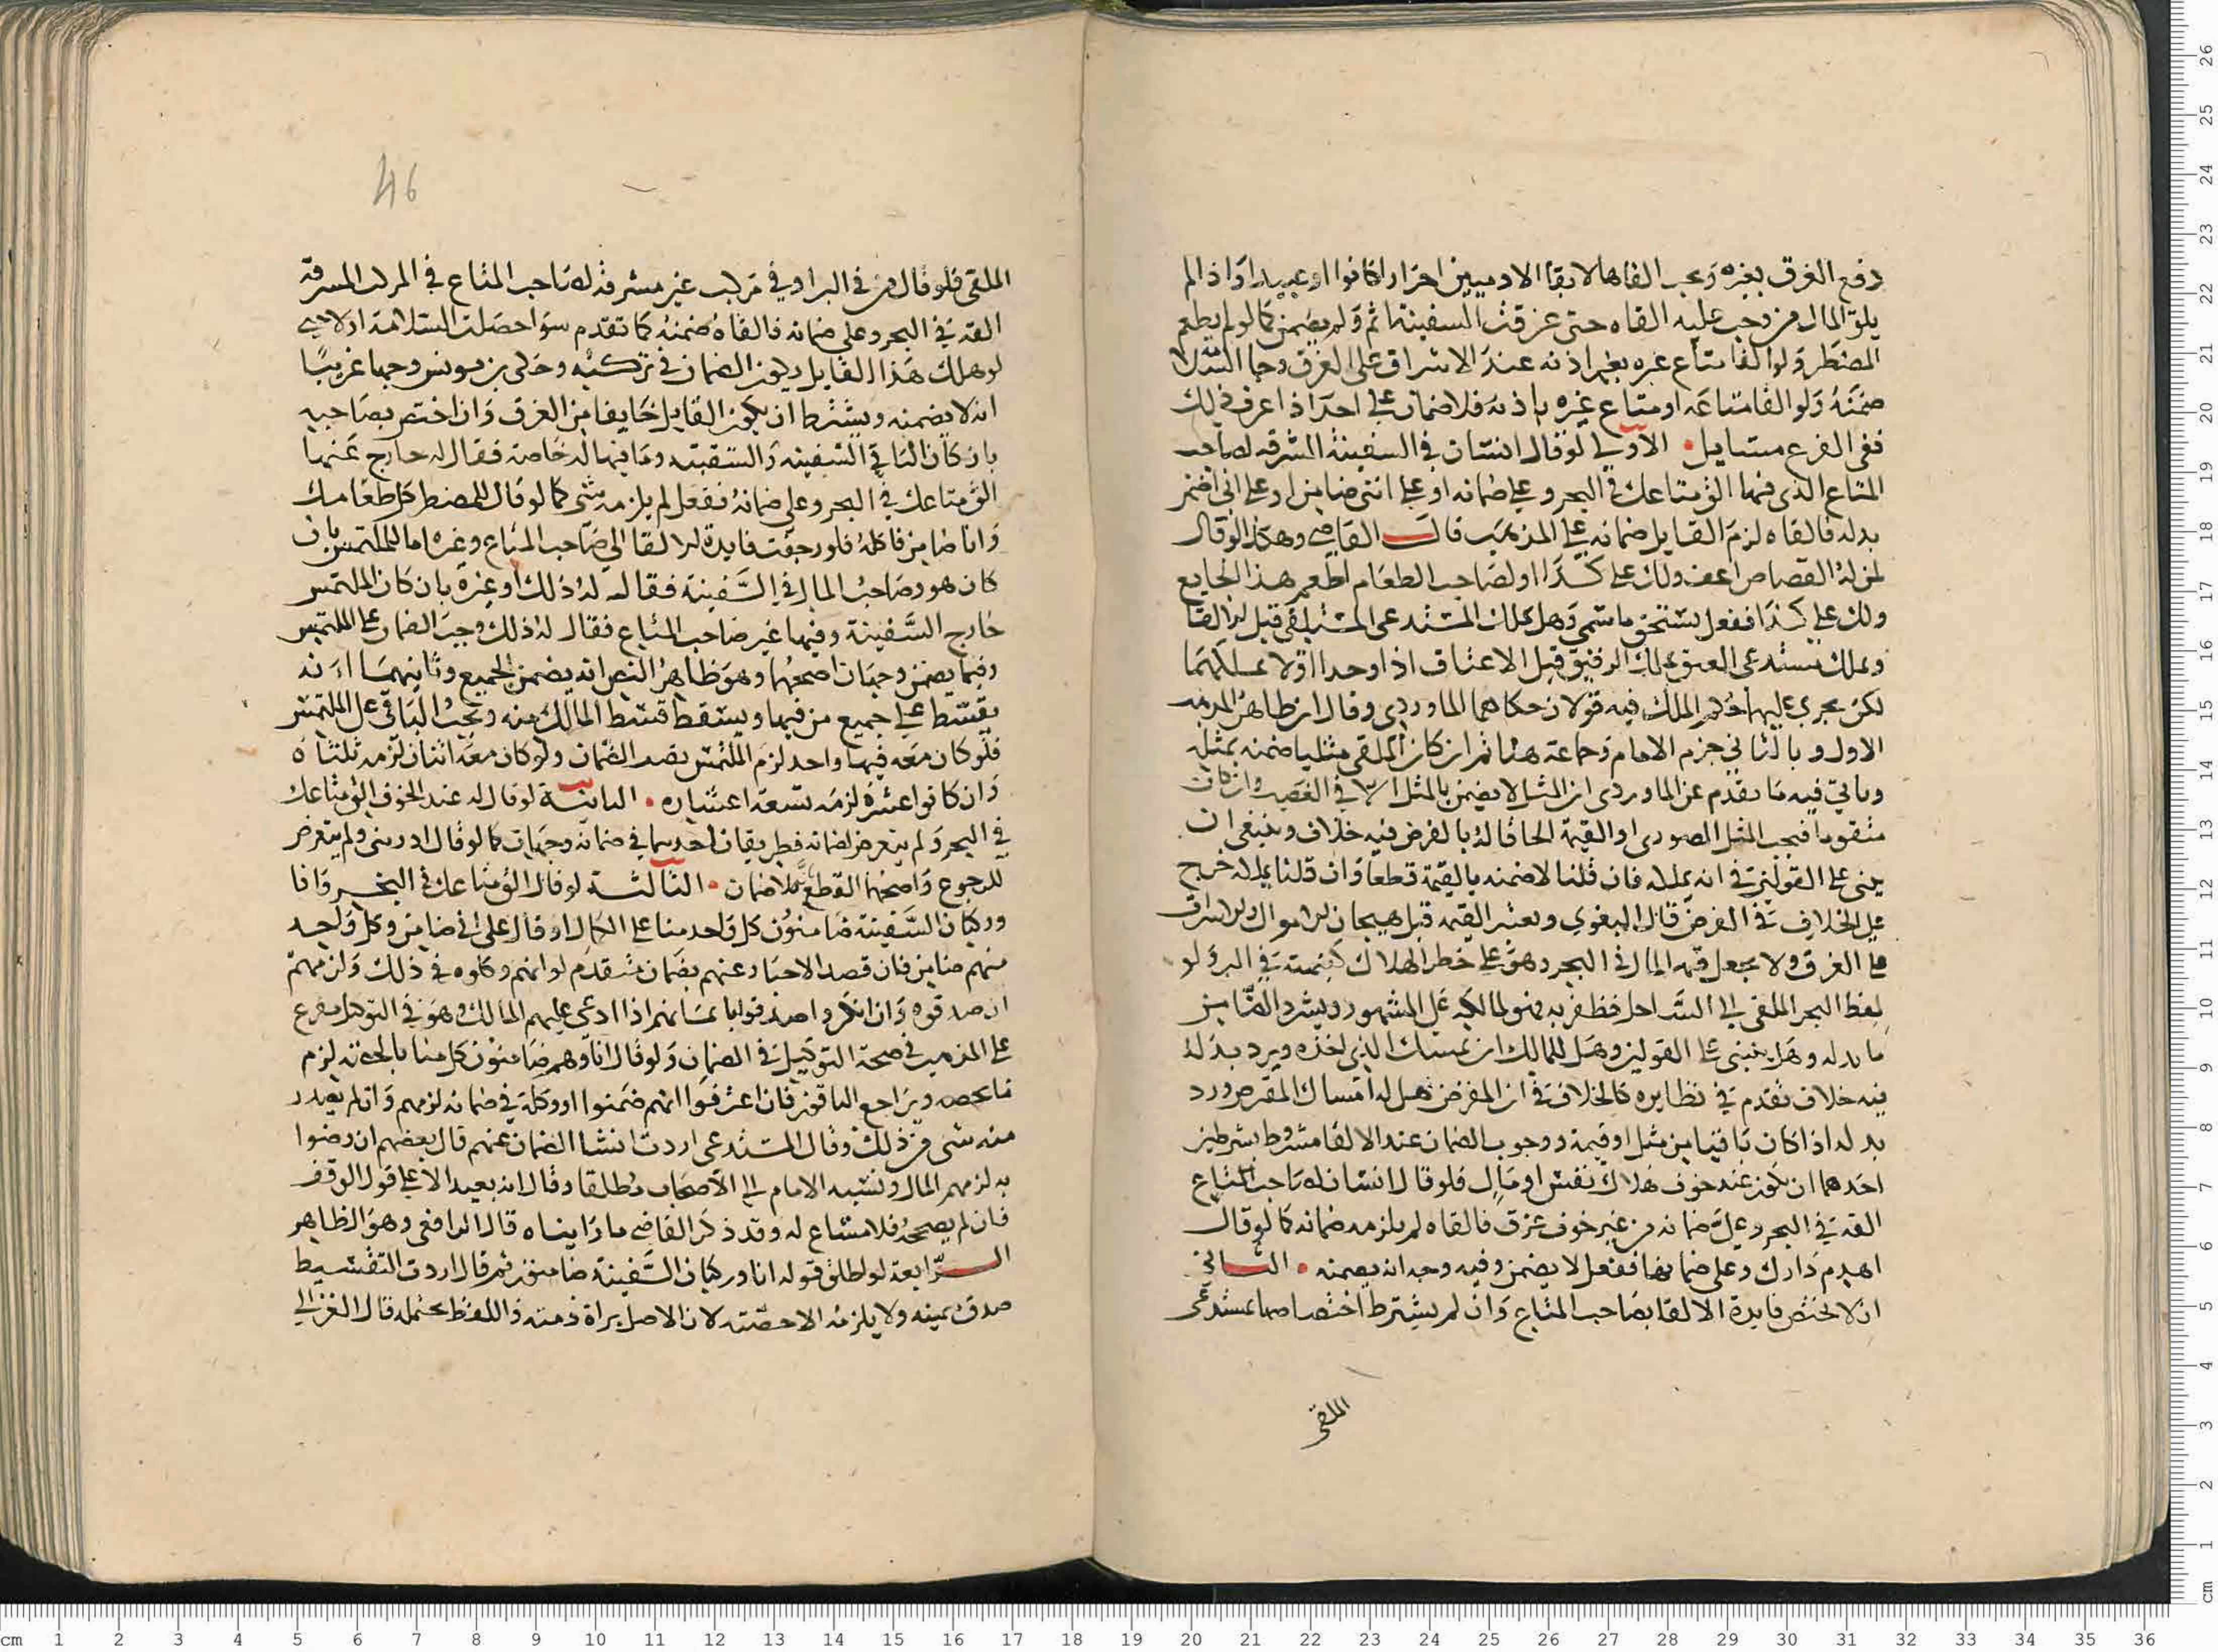 دفع الغرق بغيره ويجب القاها لابقا الادميين احرارا كانوا او عبيدا واذا لم
يلق المال من وجب عليه القاه حتى غرقت السفينة اثم ولم يضمن كما لو لم يطعم
المضطر ولو القا متاع غيره بغير اذنه عند الاشراف على الغرق وجا السلامة
ضمنه ولو القا متاعه او متاع غيره باذنه فلا ضمان على احد اذا عرف ذلك
ففي الفرع مسايل • الاولى لو قال انسان في السفينة المشرفه لصاحب
المتاع الذي فيها الق متاعك في البحر وعلي ضمانه او على انني ضامن او على اني اضمن
بدله فالقاه لزم القايل ضمانه على المذهب قال القاضي وهكذا لو قال
لمن له القصاص اعف ولك علي كذا او لصاحب الطعام اطعم هذا الجايع
ولك علي كذا ففعل يستحق ما سمى وهل يملك المستدعي المستلقى قبل الالقا
ويملك مستدعي العتق ملك الرقيق قبل الاعتاق اذا وجدا او لا يملكهما
لكن يجري عليهما حكم الملك فيه قولان حكاهما الماوردي وقال ان ظاهر المذهب
الاول وبالثاني جزم الامام وجماعة هنا ثم ان كان الملقى مثليا ضمنه بمثله
وياتي فيه ما تقدم عن الماوردي ان المثل لا يضمن بالمثل الا في الغصب وان كان
متقوما فيجب المثل الصوري او القيمة الحاقا له بالقرض فيه خلاف وينبغي ان
يبنى على القولين في انه يملكه فان قلنا لا ضمنه بالقيمة قطعا وان قلنا يملكه خرج
على الخلاف في القرض قال البغوي وتعتبر القيمه قبل هيجان الامواج والاشراف
على الغرق ولا يجعل قيمه المال في البحر وهو على خطر الهلاك كقيمته في البر ولو
لفظ البحر الملقى الى الساحل فظفر به فهو لمالكه على المشهور ويسترد الضامن
ما بدله وهل ينبني على القولين وهل للمالك ان يمسك الذي اخذه ويرد بدله
فيه خلاف تقدم في نظايره كالخلاف في ان المقرض هل له امساك القرض ورد
بدله اذا كان باقيا من مثل او قيمة ووجوب الضمان عند الالقا مشروط بشرطين
احدهما ان يكون عند خوف هلاك نفس او مال فلو قال انسان لصاحب المتاع
القه في البحر وعلي ضمانه من غير خوف غرق فالقاه لم يلزمه ضمانه كما لو قال
اهدم دارك وعلى ضمانها ففعل لا يضمن وفيه وجه انه يضمنه • الثاني
ان لا تختص فايدة الالقا بصاحب المتاع وان لم يشترط اختصاصها بمستدعي
الملقى
46
الملقى فلو قال من في البر او في مركب غير مشرفة لصاحب المتاع في المركب المشرفة
القه في البحر وعلى ضمانه فالقاه ضمنه كما تقدم سوا حصلت السلامة او لا حتى
لو هلك هذا القايل ويكون الضمان في تركته وحكى بن يونس وجها غريبا
انه لا يضمنه ويشترط ان يكون القايل خايفا من الغرق وان اختص بصاحبه
بان كان الباقي السفينه والسفينه وما فيها له خاصة فقال له خارج عنها
الق متاعك في البحر وعلى ضمانه ففعل لم يلزمه شي كما لو قال للمضطر كل طعامك
وانا ضامن فاكله فلو رجعت فايدة الالقا الي صاحب المتاع وغيره اما للملتمس بان
كان هو وصاحب المال في السفينة فقال له ذلك او غيره بان كان الملتمس
خارج السفينة وفيها غير صاحب المتاع فقال له ذلك وجب الضمان على الملتمس
وفيما يضمن وجهان اصحهما وهو ظاهر النص انه يضمن الجميع وثانيهما انه
يقسط على جميع من فيها ويسقط قسط المالك منه ويجب الباقي على الملتمس
فلو كان معه فيها واحد لزم الملتمس نصف الضمان ولو كان معه اثنان لزمه ثلثاه
وان كانوا عشرة لزمه تسعة اعشاره • الثانية لو قال له عند الخوف الق متاعك
في البحر ولم يتعرض لضمانه فطريقان احدهما في ضمانه وجهان كما لو قال اد ديني ولم يتعرض
للرجوع واصحهما القطع بلا ضمان • الثالثة لو قال الق متاعك في البحر وانا
وركبان السفينة ضامنون كل واحد منا على الكمال او قال على اني ضامن وكل واحد
منهم ضامن فان قصد الاخبار عنهم بضمان متقدم لو انهم وكلوه في ذلك ولزمهم
ان صدقوه وان انكروا صدقوا بايمانهم اذا ادعى عليهم المالك وهو في التوكيل مفرع
على المذهب في صحة التوكيل في الضمان ولو قال انا وهم ضامنون كل منا بالحصة لزم
ما يخصه ويراجع الباقون فان اعترفوا انهم ضمنوا او وكله في ضمانه لزمهم وان لم يصدر
منه شي من ذلك وقال المستدعي اردت انشا الضمان عنهم قال بعضهم ان رضوا
به لزمهم المال ونسبه الامام الى الاصحاب مطلقا وقال انه بعيد الا على قول الوقف
فان لم يصححه فلا مساغ له وقد ذكر القاضي ما رايناه قال الرافعي وهو الظاهر
الرابعة لو اطلق قوله انا وركبان السفينة ضامنون ثم قال اردت التقسيط
صدق بيمينه ولا يلزمه الا حصته لان الاصل براة ذمته واللفظ يحتمله قال الغزالي